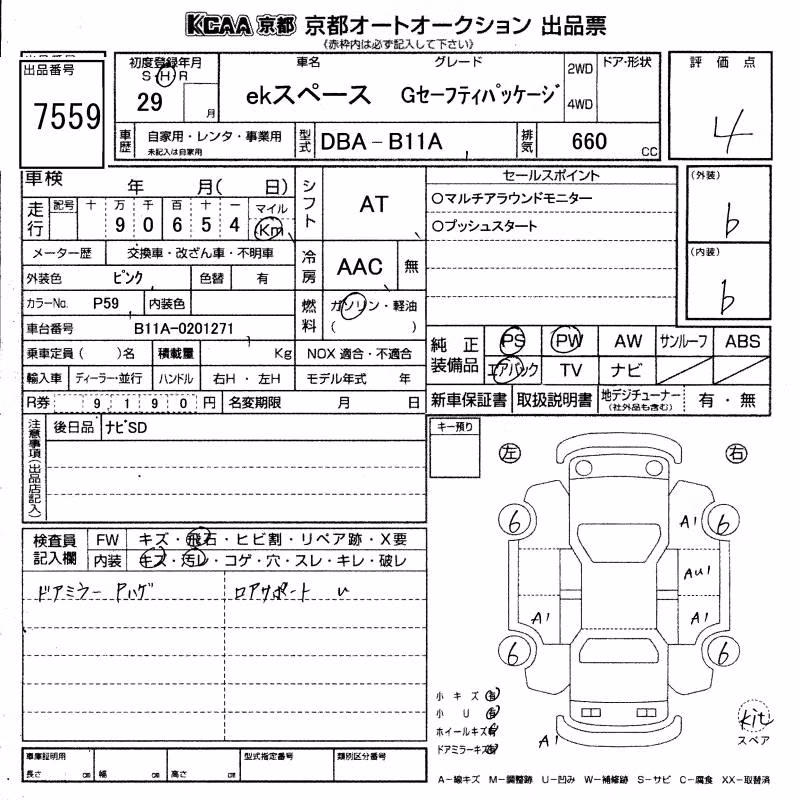 KCAA 京都 京都オートオークション 出品票
(赤枠内は必ず記入して下さい)
出品番号
7559
初度登録年月
S H R
29 月
車名 グレード
ekスペース Gセーフティパッケージ
2WD
4WD
ドア・形状
評価点
4
車歴
自家用・レンタ・事業用
未記入は自家用
型式
DBA-B11A
排気
660 CC
車検 年 月( 日)
走行 記号 十 万 千 百 十 一 マイル
9 0 6 5 4 Km
メーター歴 交換車・改ざん車・不明車
外装色 ピンク 色替 有
カラーNo. P59 内装色
車台番号 B11A-0201271
乗車定員( )名 積載量 Kg
輸入車 ディーラー・並行 ハンドル 右H・左H
R券 9190円 名変期限 月 日
シフト AT
冷房 AAC 無
燃料 ガソリン・軽油
( )
NOX 適合・不適合
モデル年式 年
セールスポイント
○マルチアラウンドモニター
○プッシュスタート
(外装)
b
(内装)
b
純正装備品
PS PW AW サンルーフ ABS
エアバック TV ナビ
新車保証書 取扱説明書 地デジチューナー
(社外品も含む)
有・無
注意事項(出品店記入)
後日品 ナビSD
検査員記入欄
FW キズ・飛石・ヒビ割・リペア跡・X要
内装 キズ・汚レ・コゲ・穴・スレ・キレ・破レ
ドアミラー Pハゲ
ロアサポート U
キー預り
左 右
6 A1 6
AU1
A1 A1
6 6
小キズ 有
小U 有
ホイールキズ 有
ドアミラーキズ 有
A1
kit
スペア
車庫証明用
長さ ㎝ 幅 ㎝ 高さ ㎝
型式指定番号
類別区分番号
A-線キズ M-調整跡 U-凹み W-補修跡 S-サビ C-腐食 XX-取替済